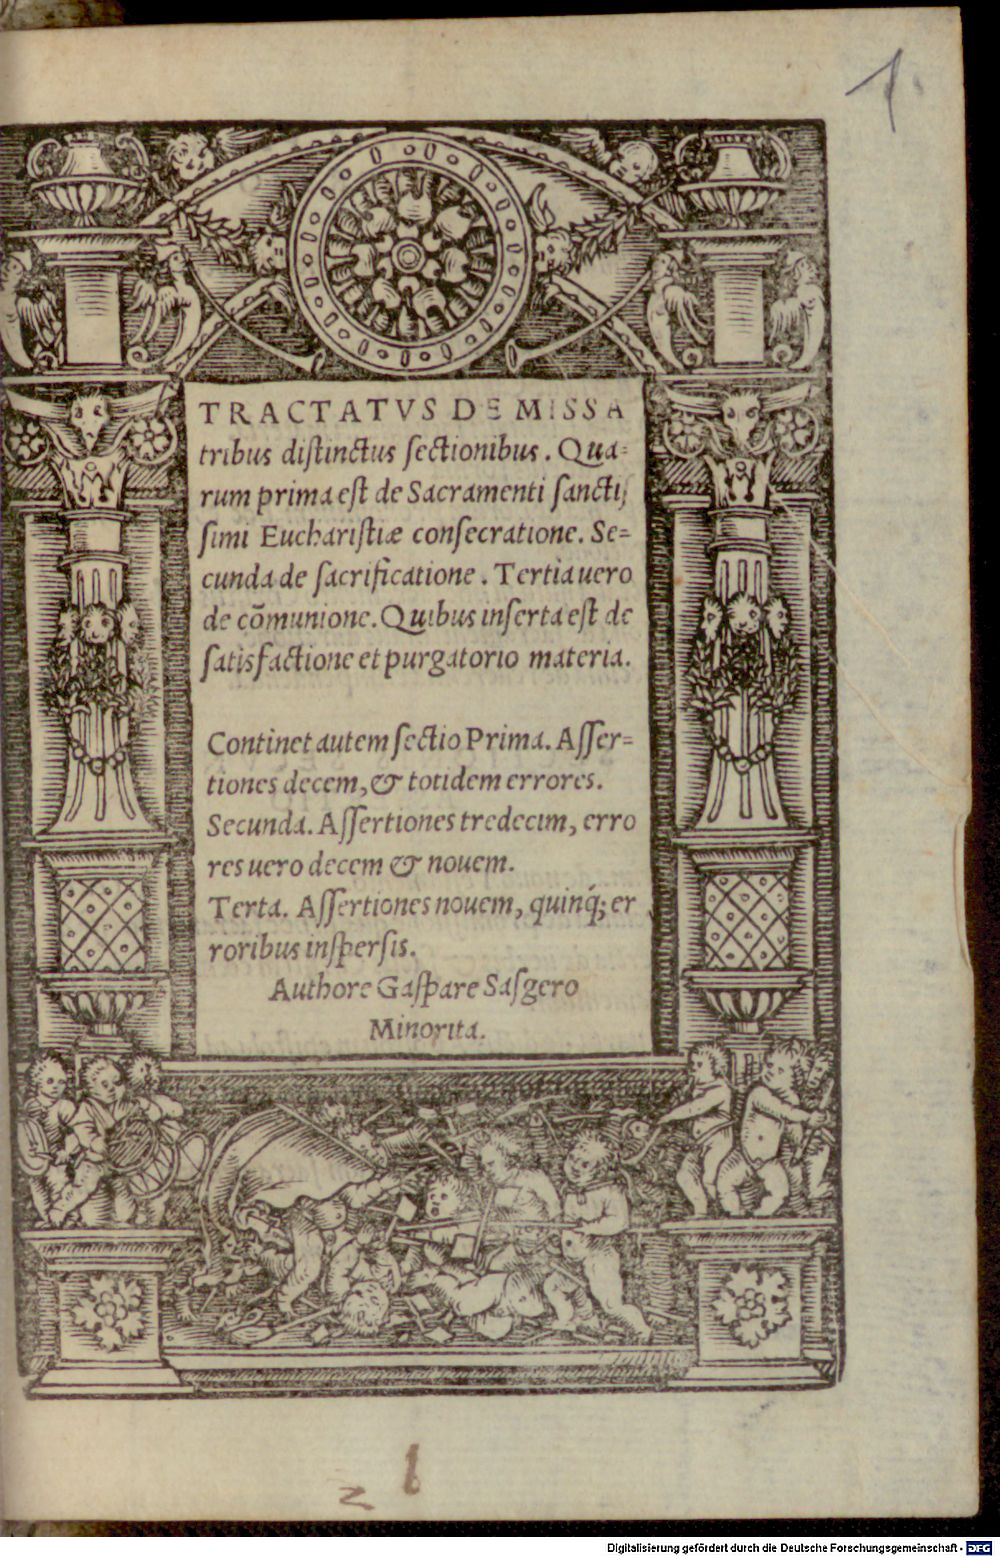 1.
TRACTATVS DE MISSA
tribus distinctus sectionibus. Qua=
rum prima est de Sacramenti sanctis
simi Eucharistiæ consecratione. Se=
cunda de sacrificatione. Tertia uero
de cõmunione. Quibus inserta est de
satisfactione et purgatorio materia.
Continet autem sectio Prima. Asser=
tiones decem, & totidem errores.
Secunda. Assertiones tredecim, erro
res uero decem & nouem.
Terta. Assertiones nouem, quinq́; er
roribus inspersis.
Authore Gaspare Sasgero
Minorita.
1
2
Digitalisierung gefördert durch die Deutsche Forschungsgemeinschaft - DFG